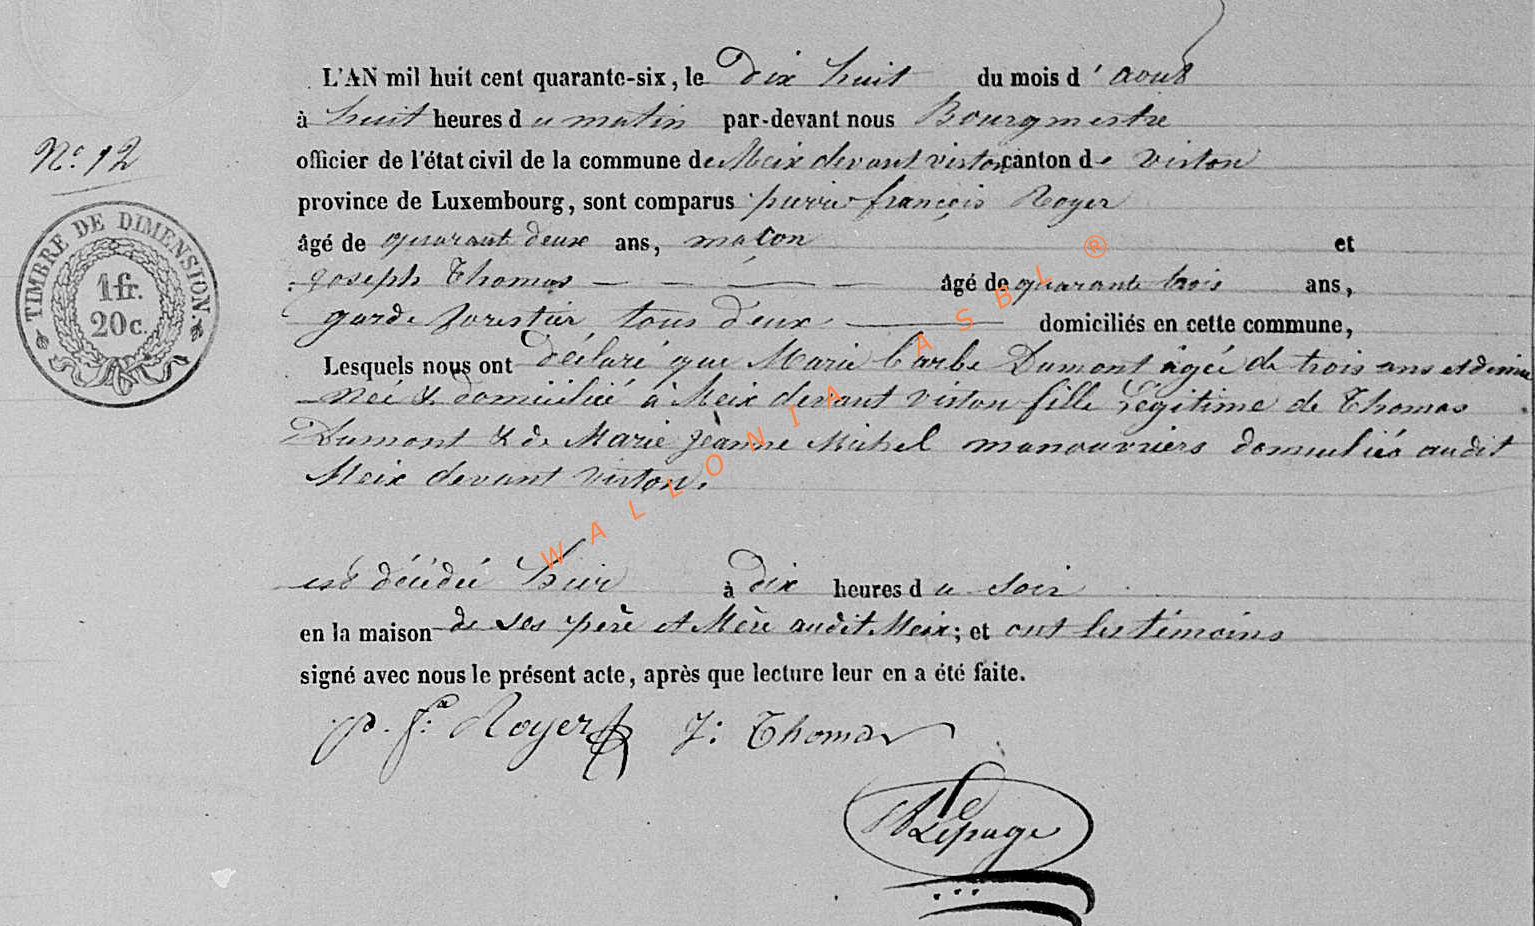 L'AN mil huit cent quarante-six, le dix huit du mois d' aout
à huit heures du matin par-devant nous Bourgmestre
N.º 12
officier de l'état civil de la commune de Meix devant virton canton de virton
province de Luxembourg, sont comparus pierre françois Royer
âgé de quarant deux ans, maçon et
joseph Thomas — — — — — âgé de quarante trois ans,
garde forestier, tous deux — domiciliés en cette commune,
Lesquels nous ont déclaré que Marie barbe Dumont agée de trois ans et demie
née & domicilié à Meix devant virton fille légitime de Thomas
Dumont & de Marie jeanne Michel manouvriers domiciliés audit
Meix devant virton.
est décédée hier à dix heures du soir
en la maison de ses père et Mère audit Meix; et ont les témoins
signé avec nous le présent acte, après que lecture leur en a été faite.
p. f. Royer J: Thomas
Lepage
TIMBRE DE DIMENSION.
1 fr.
20 c.
WALLONIA ASBL ®